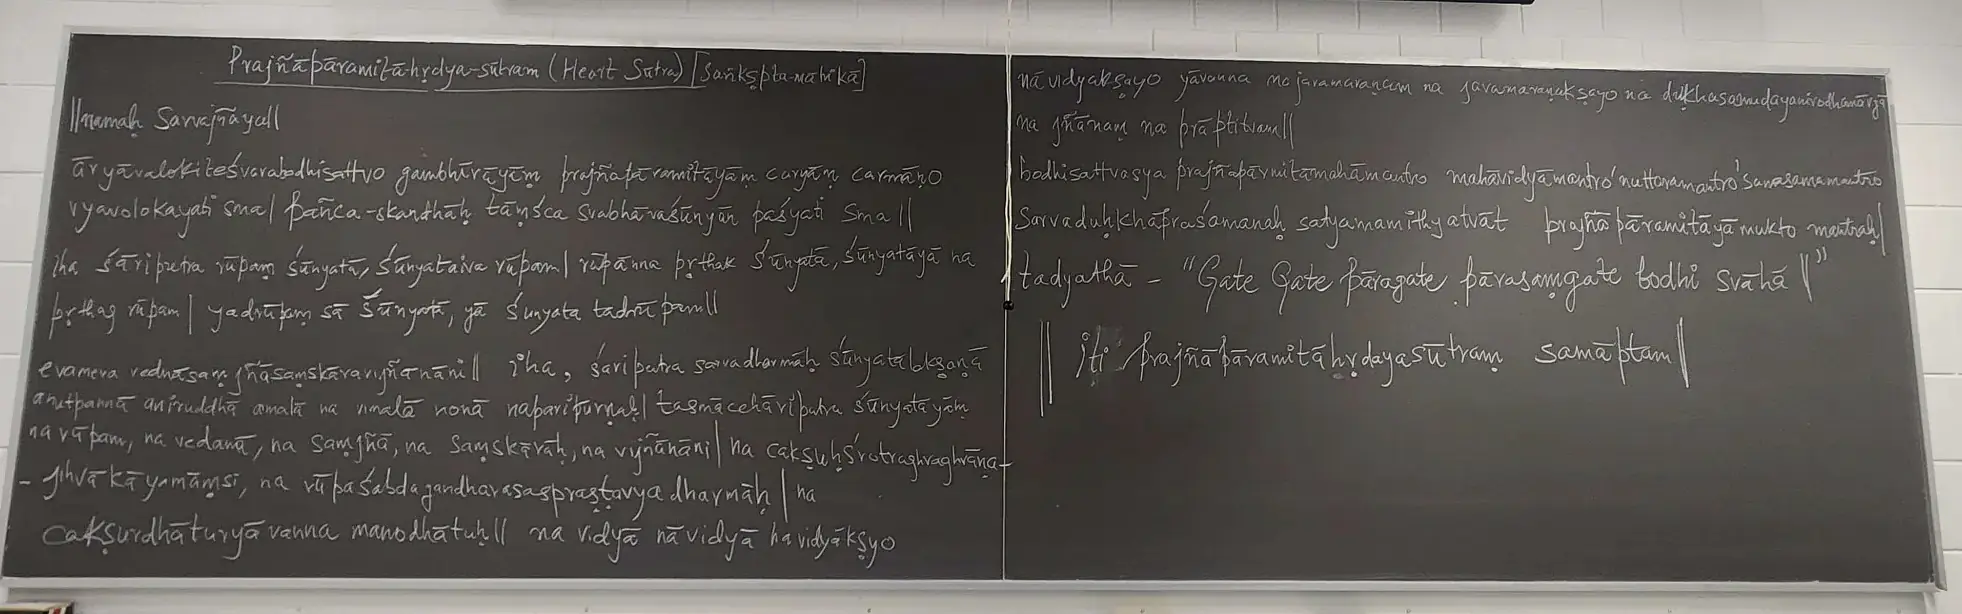 Prajñāpāramitā-hṛdya-sūtram (Heart Sūtra) [Saṅkṣpta-matṛkā]
||namaḥ Sarvajñāya||
āryāvalokiteśvarabodhisattvo gambhīrāyāṃ prajñāpāramitāyāṃ caryāṃ carmāṇo
vyavolokayati sma| pañca-skandhāḥ tāṃśca svabhāvaśūnyān paśyati sma||
iha śāriputra rūpaṃ śūnyatā, śūnyataiva rūpam| rūpānna pṛthak śūnyatā, śūnyatāyā na
pṛthag rūpam| yadrūpaṃ sā śūnyatā, yā śunyata tadrūpam||
evameva vednāsaṃjñāsaṃskāravijñānāni|| iha, śariputra sarvadharmāḥ śūnyatālakṣaṇā
anutpannā aniruddhā amalā na vimalā nonā naparipūrṇaḥ| tasmācchāriputra śūnyatāyāṃ
na rūpam, na vedanā, na saṃjñā, na saṃskārāḥ, na vijñānāni| na cakṣuḥśrotraghraghrāṇa-
- jihvākāyamāṃsi, na rūpaśabdagandharasaspraṣṭavyadharmāḥ| na
cakṣurdhāturyāvanna manodhātuḥ|| na vidyā nāvidyā na vidyākṣyo
nā vidyakṣayo yāvanna na jaramaraṇam na jaramaraṇakṣayo na dukkhasamudayanirodhamārgā
na jñānaṃ na prāptitvam||
bodhisattvasya prajñāpārmitāmahāmantro mahāvidyāmantro'nuttaramantro'samasamamantro
Sarvaduḥkhāpraśamanaḥ satyamamithyatvāt prajñāpāramitāyāmukto mantraḥ|
tadyathā - "Gate Gate pāragate pārasaṃgate bodhi svāhā||"
|| iti prajñāpāramitāhṛdayasūtraṃ samāptam||